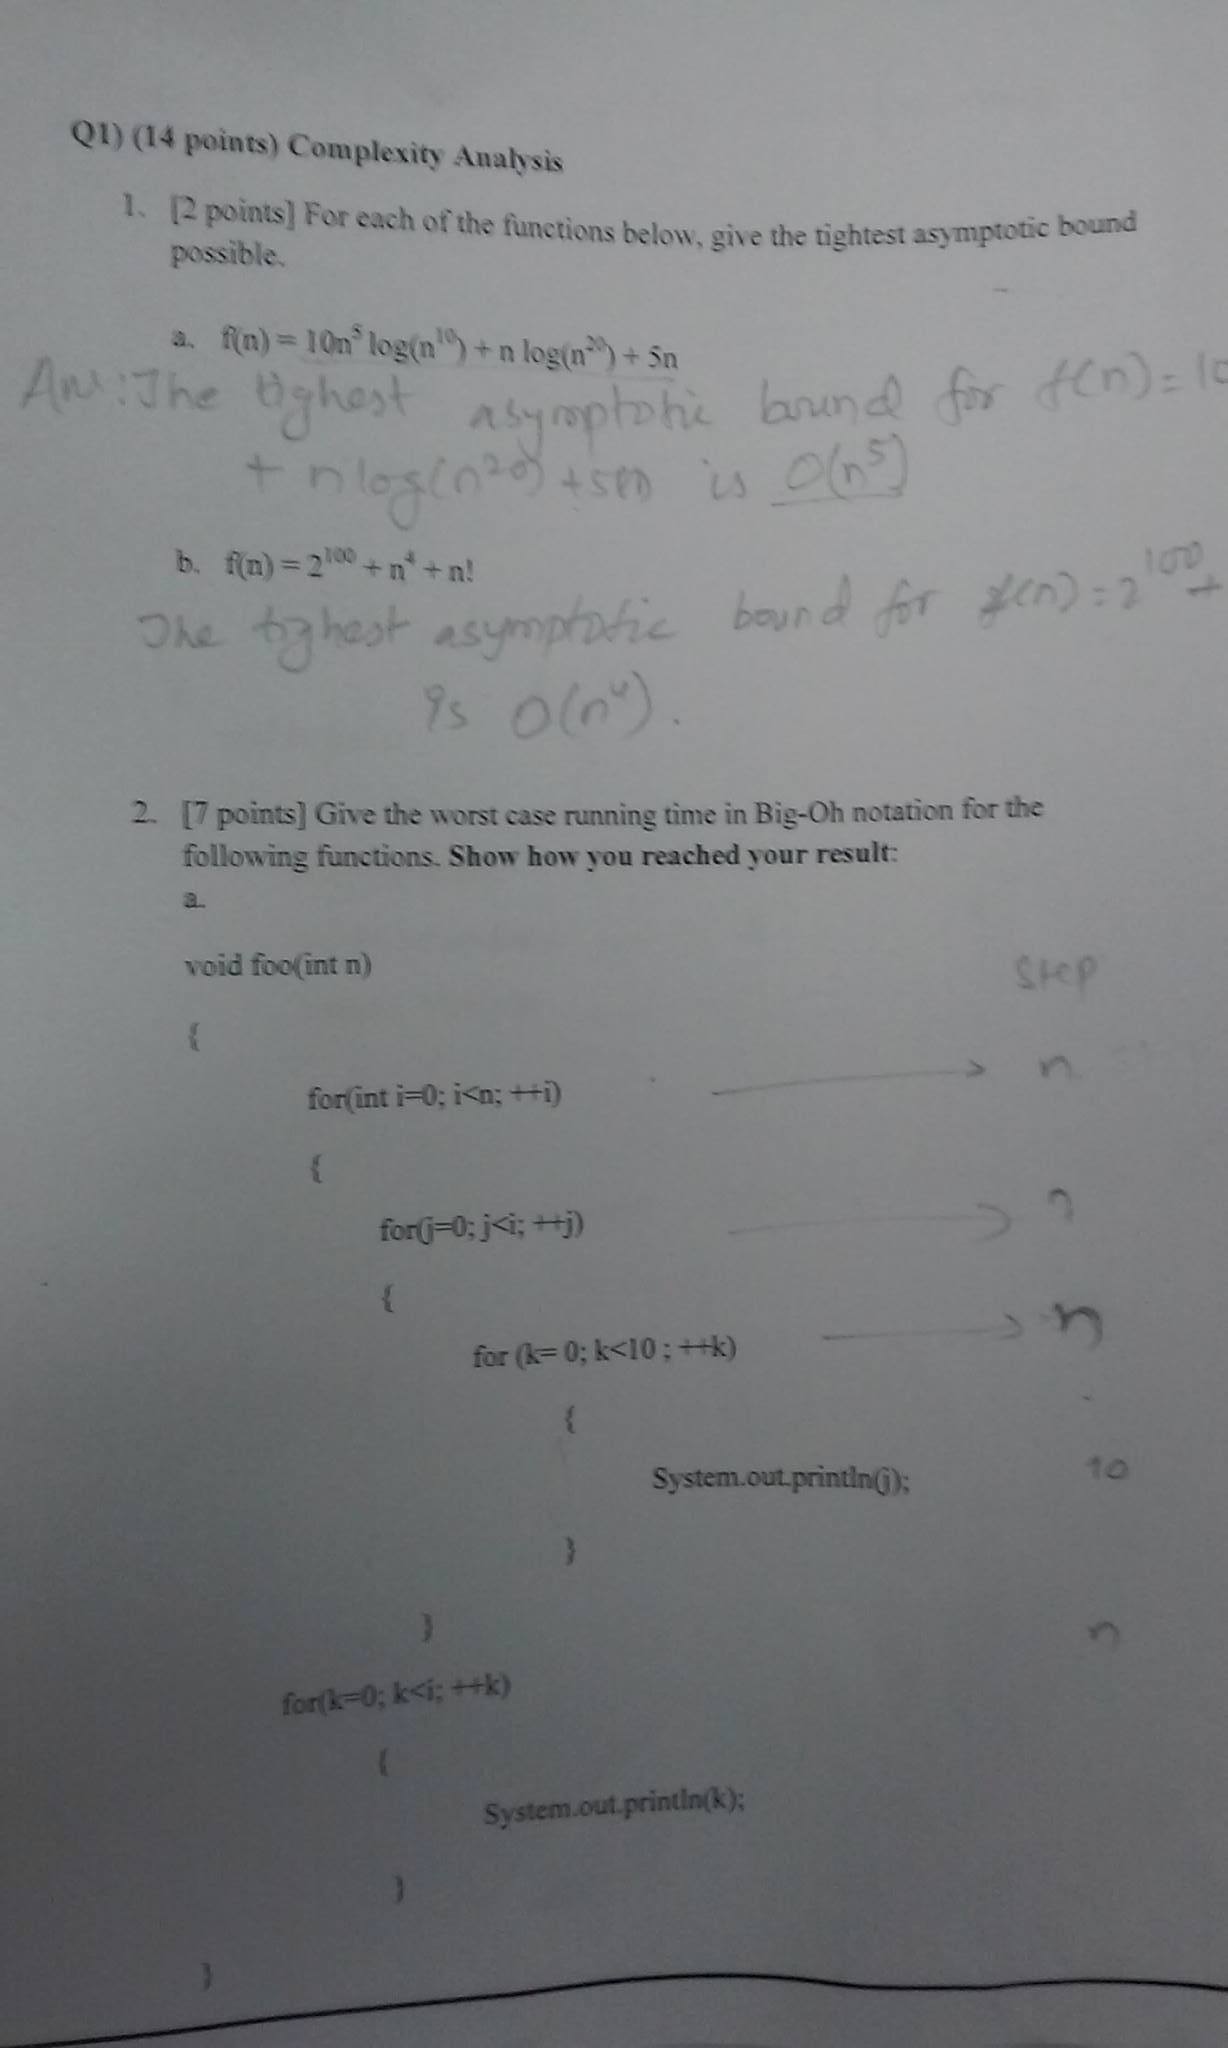 Q1) (14 points) Complexity Analysis
1. [2 points] For each of the functions below, give the tightest asymptotic bound
possible.
a. f(n) = 10n⁵ log(n¹⁰) + n log(n²⁰) + 5n
Ans: The tighest asymptotic bound for f(n) = 10
+ n log(n²⁰) + 5n is O(n⁵)
b. f(n) = 2¹⁰⁰ + n⁴ + n!
The tighest asymptotic bound for f(n) = 2¹⁰⁰ +
is O(n⁴).
2. [7 points] Give the worst case running time in Big-Oh notation for the
following functions. Show how you reached your result:
a.
void foo(int n)
Step
{
for(int i=0; i<n; ++i)
n
{
for(j=0; j<i; ++j)
{
for (k= 0; k<10 ; ++k)
n
{
System.out.println(j);
10
}
}
n
for(k=0; k<i; ++k)
{
System.out.println(k);
}
}